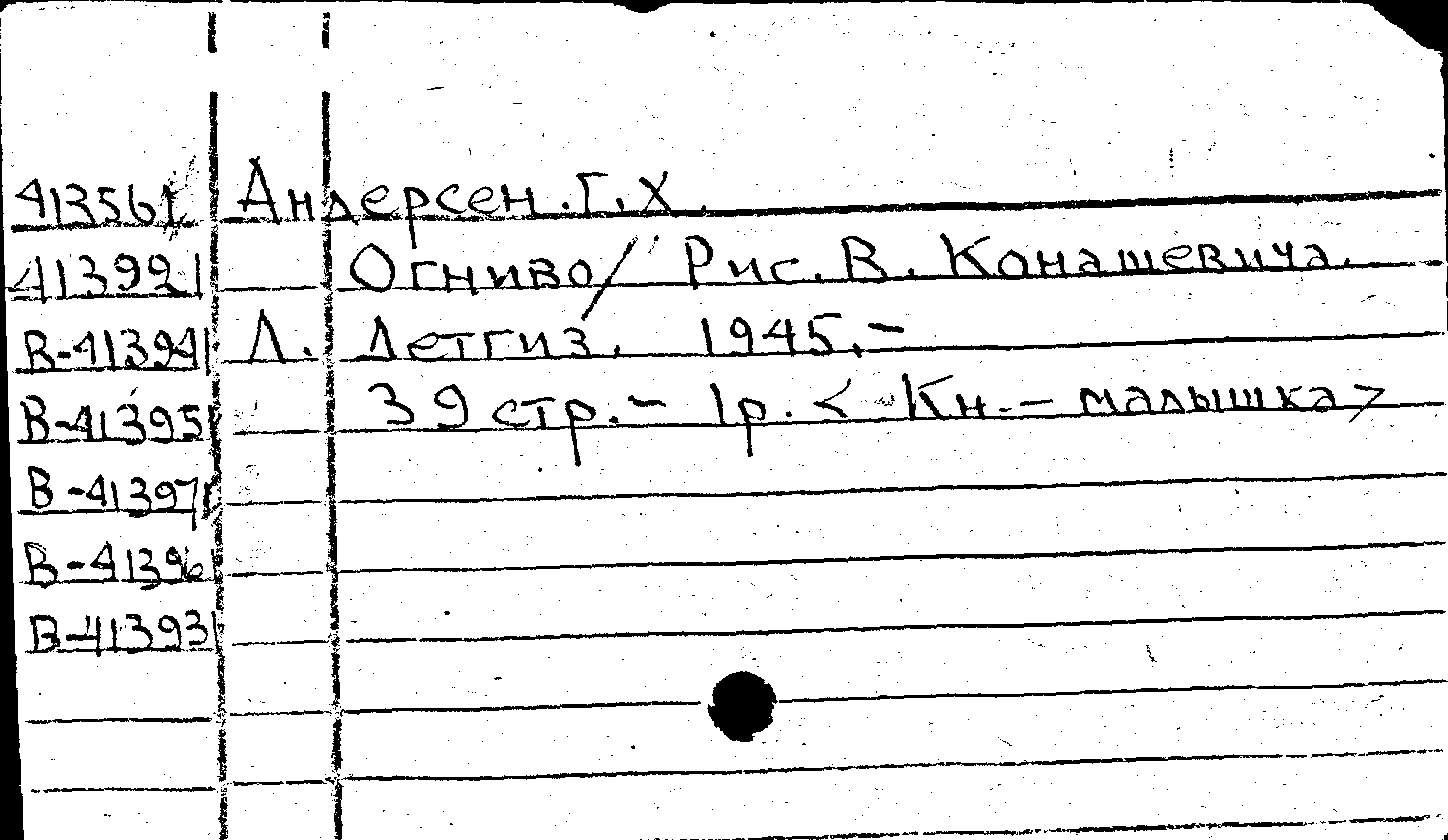 413561 Андерсен.Г.Х.
413992 Огниво/ Рис. В. Конашевича.
В-41394 Л. Детгиз. 1945.-
В-41395 39 стр.- 1р. < Кн.- малышка>
В-41397
В-41396
В-41393